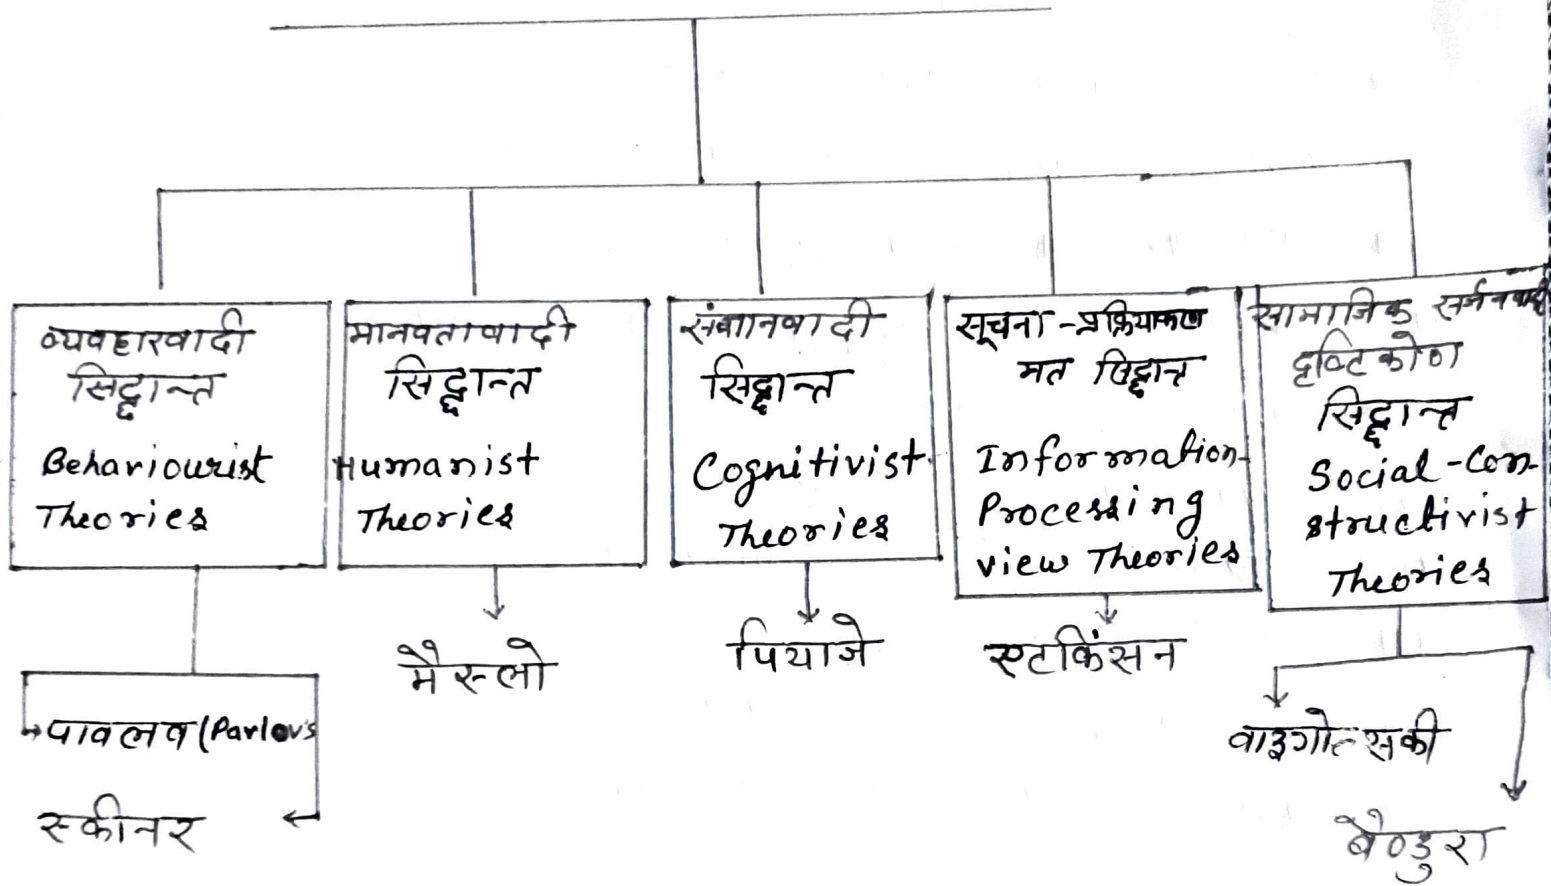 व्यवहारवादी
सिद्धान्त
Behaviourist
Theories
मानवतावादी
सिद्धान्त
Humanist
Theories
संज्ञानवादी
सिद्धान्त
Cognitivist
Theories
सूचना-प्रक्रियाकरण
मत सिद्धान्त
Information-
Processing
view Theories
सामाजिक सर्जनवादी
दृष्टिकोण
सिद्धान्त
Social-Con-
structivist
Theories
पावलव (Pavlov's
स्कीनर
मैस्लो
पियाजे
एटकिंसन
वाइगोत्सकी
बैण्डुरा